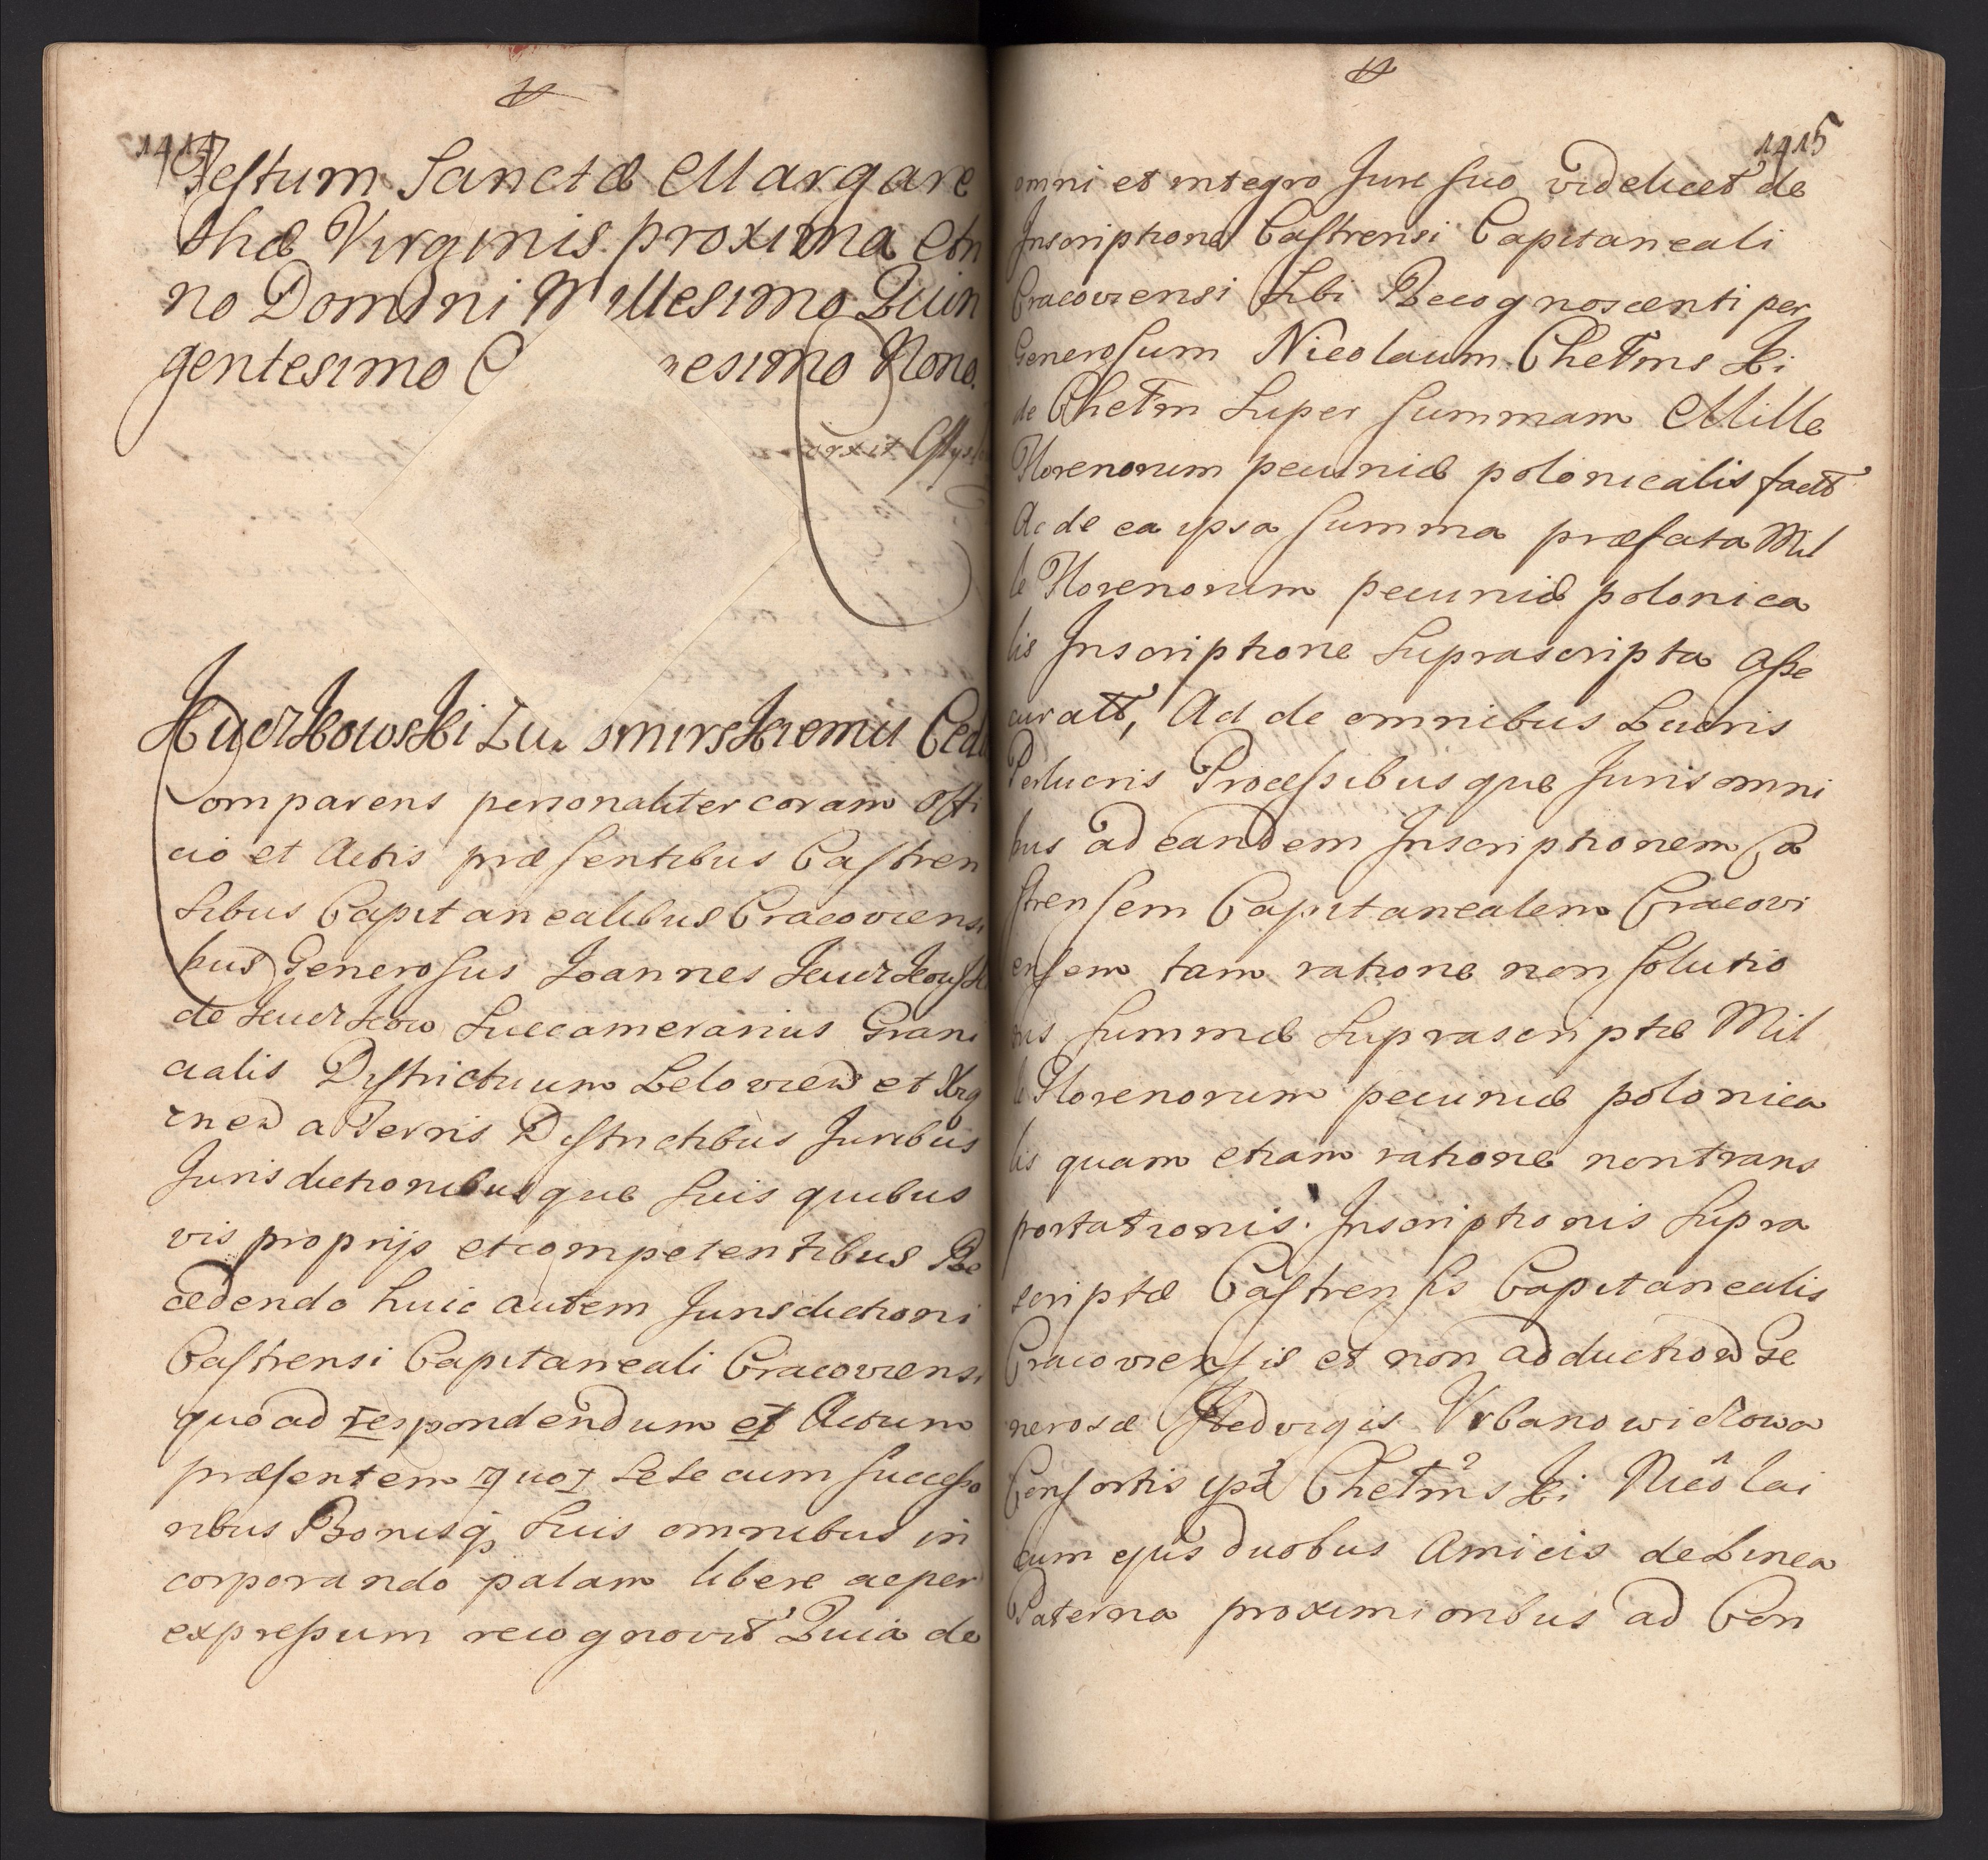 1414
Festum Sanctæ Margare
thæ Virginis proxima An
no Domini Millesimo Quin
gentesimo esimo Nono.
Cediť
Comparens personaliter coram Offi
cio et Actis præsentibus Castren
sibus Capitanealibus Cracoviensi
bus Generosus Joannes
de Succamerarius Grani
cialis Districtuum Lelovien et Xią
znen a Terris Districtibus Juribus
Jurisdictionibusque suis quibus
vis proprijs et competentibus Re
cedendo huic autem Jurisdictioni
Castrensi Capitaneali Cracoviensi
quoad respondendum et Actum
præsentem quot sese cum successo
ribus Bonisq suis omnibus in
corporando palam libere ac per
expressum recognovit Quia de
1415
omni et integro Jure suo videlicet de
Inscriptione Castrensi Capitaneali
Cracoviensi Sibi Recognoscenti per
Generosum Nicolaum Chełmski
de Chełm Super Summam Mille
Florenorum pecuniæ polonicalis fact
Ac de ea ipsa Summa præfata Mil
le Florenorum pecuniæ polonica
lis Inscriptione Suprascripta asse
curatt, Ad de omnibus Lucris
Perlucris Processibusque Juris omni
bus ad eandem Inscriptionem Ca
strensem Capitanealem Cracovi
ensem tam ratione non solutio
nis Summæ Suprascriptæ Mil
le Florenorum pecuniæ polonica
lis quam etiam ratione non trans
portationis Inscriptionis Supra
scriptæ Castrensis Capitanealis
Cracoviensis et non adduction Ge
nerosæ Hedvigis Vrbanowiczowa
Consortis ipā Chełmski Nicolai
cum ejus duobus Amicis de Linea
Paterna proximioribus ad Con